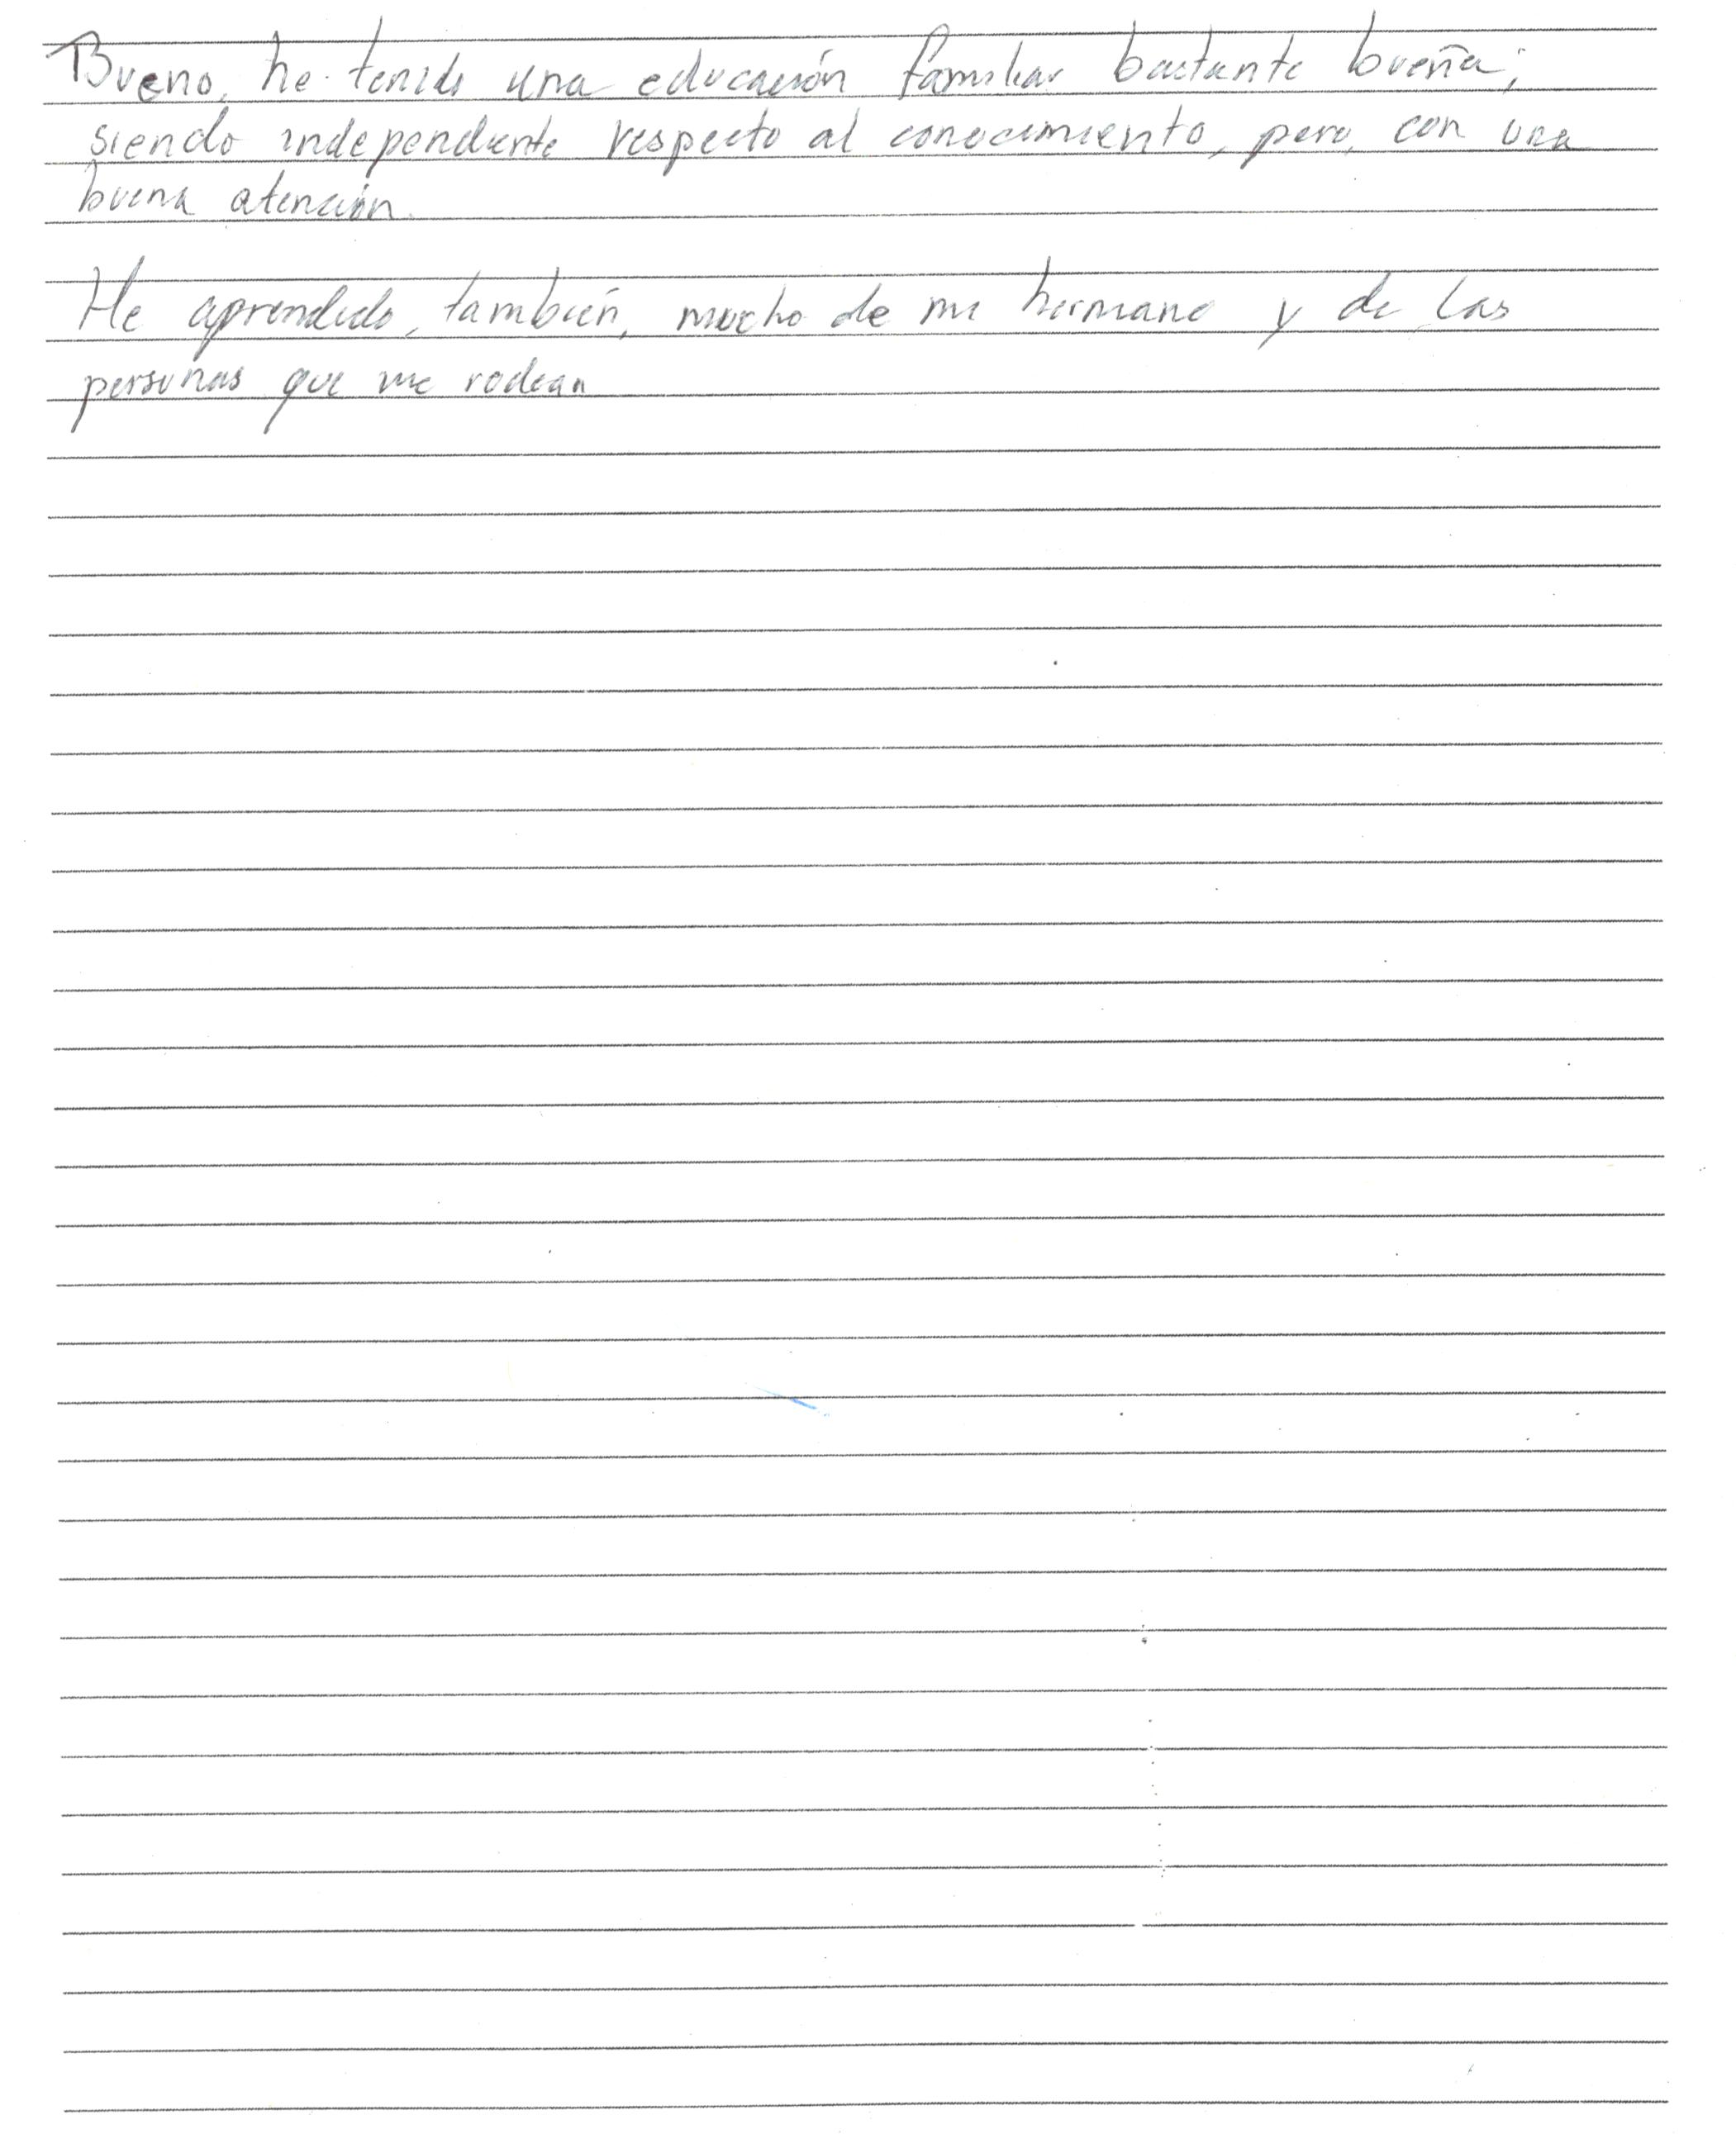 Bueno, he tenido una educación familiar bastante buena;
siendo independiente respecto al conocimiento, pero, con una
buena atención.
He aprendido, también, mucho de mi hermano y de las
personas que me rodean